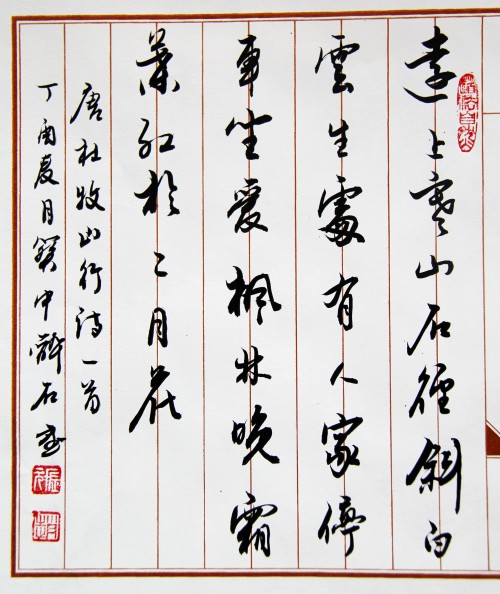 遠上寒山石徑斜白
雲生處有人家停
車坐愛楓林晚霜
葉紅於二月花
唐杜牧山行詩一首
丁酉夏月